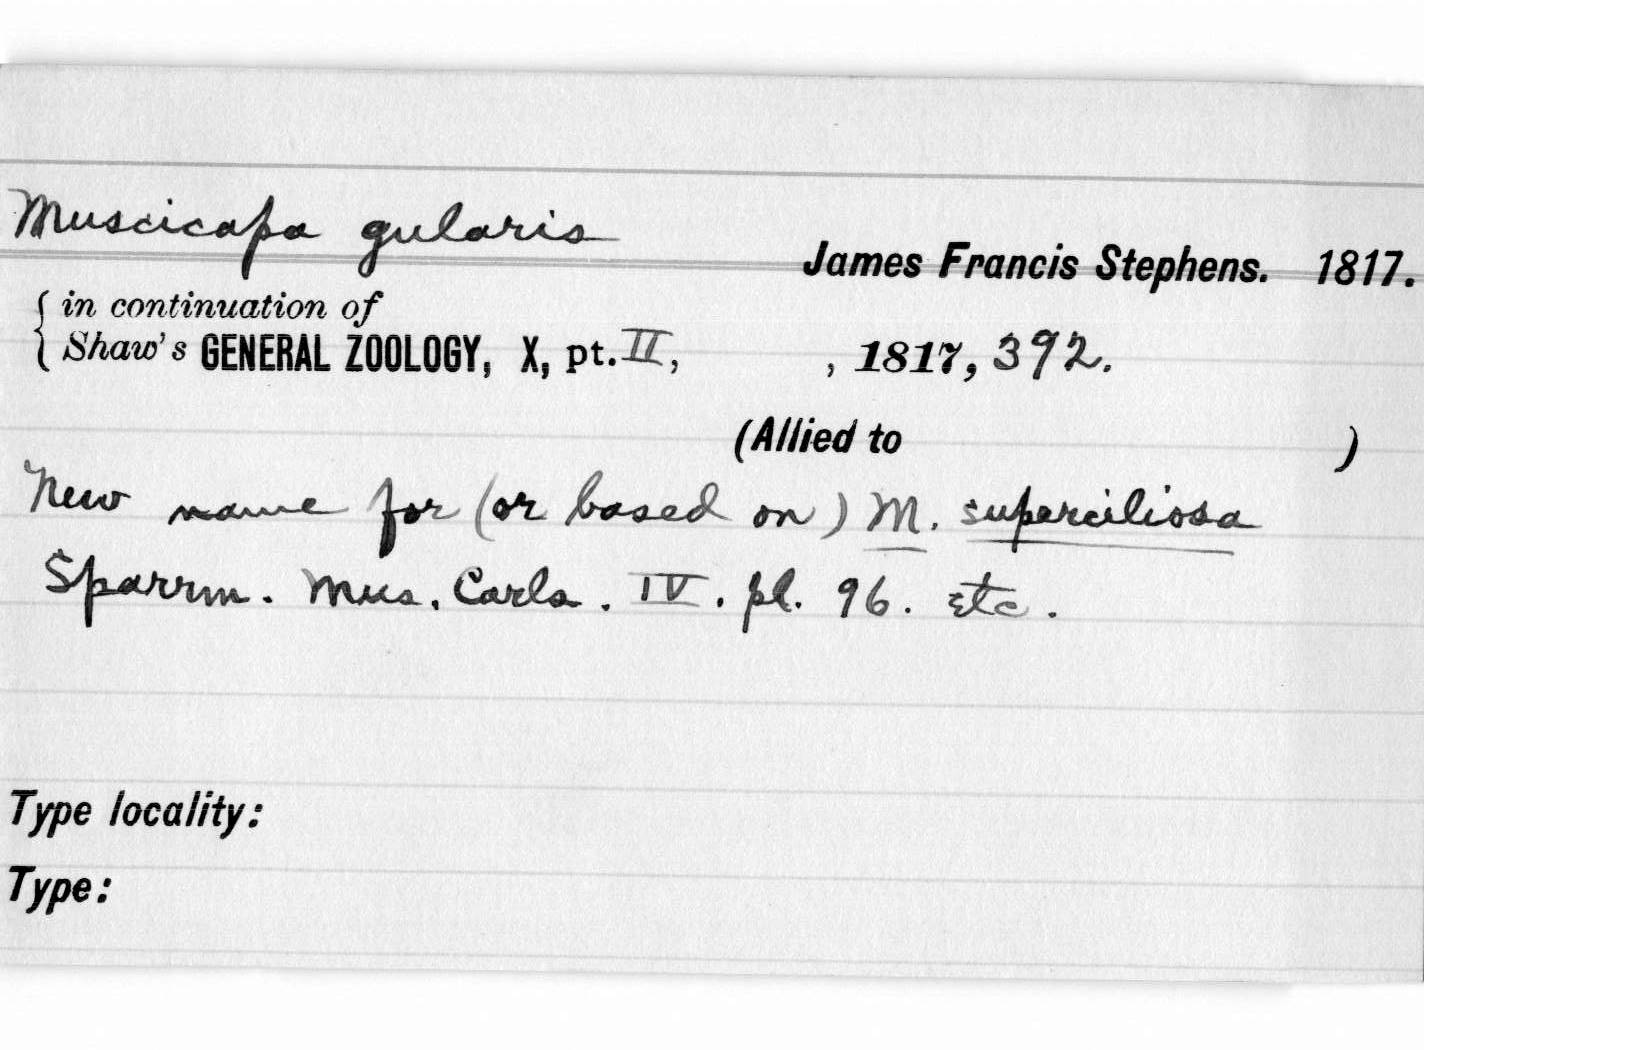 Muscicapa gularis
James Francis Stephens. 1817.
in continuation of
Shaw's GENERAL ZOOLOGY, X, pt. II, , 1817, 392.
(Allied to )
New name for (or based on) M. superciliosa
Sparrm. Mus. Carls. IV. pl. 96. etc.
Type locality:
Type: